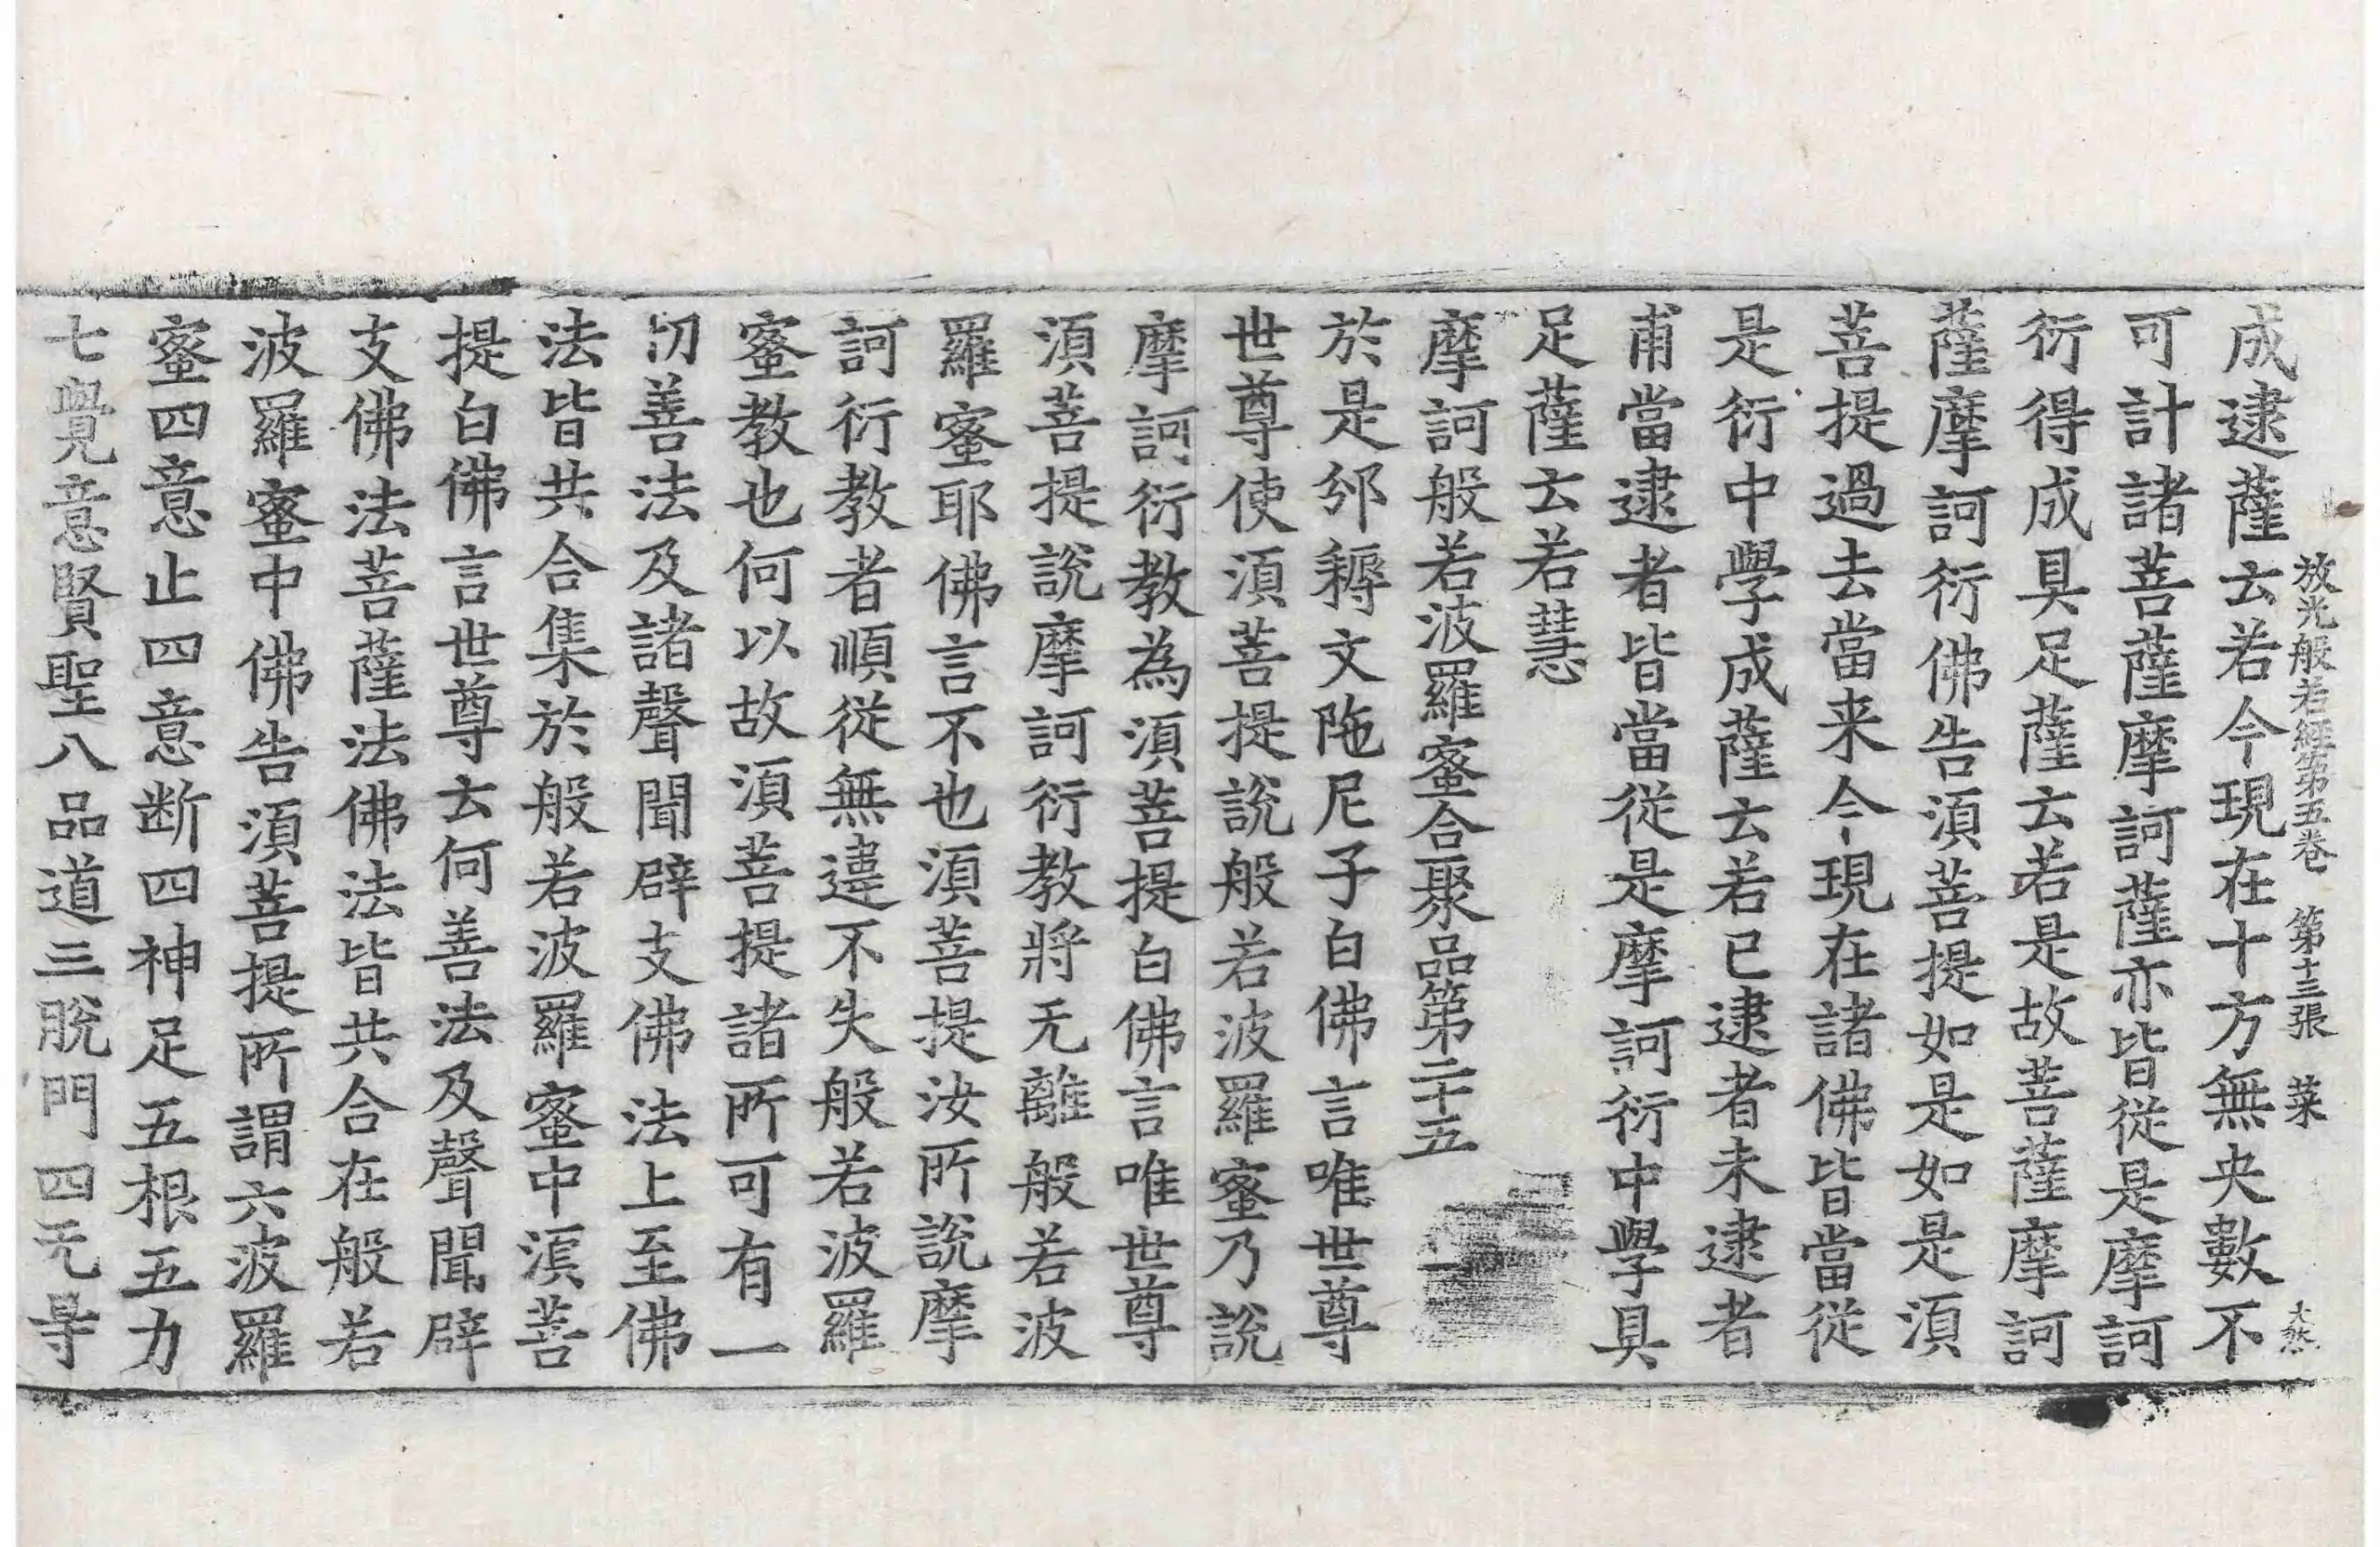 放光般若經第五卷 第十三張 菜 大煞
成逮薩云若今現在十方無央數不
可計諸菩薩摩訶薩亦皆從是摩訶
衍得成具足薩云若是故菩薩摩訶
薩摩訶衍佛告湏菩提如是如是湏
菩提過去當来今現在諸佛皆當從
是衍中學成薩云若已逮者未逮者
甫當逮者皆當從是摩訶衍中學具
足薩云若慧
摩訶般若波羅蜜合聚品第二十五
於是邠耨文陁尼子白佛言唯世尊
世尊使湏菩提說般若波羅蜜乃說
摩訶衍教為湏菩提白佛言唯世尊
湏菩提說摩訶衍教將无離般若波
羅蜜耶佛言不也湏菩提汝所說摩
訶衍教者順從無違不失般若波羅
蜜教也何以故湏菩提諸所可有一
切善法及諸聲聞辟支佛法上至佛
法皆共合集於般若波羅蜜中湏菩
提白佛言世尊云何善法及聲聞辟
支佛法菩薩法佛法皆共合在般若
波羅蜜中佛告湏菩提所謂六波羅
蜜四意止四意断四神足五根五力
七覺意賢聖八品道三脫門四无㝵